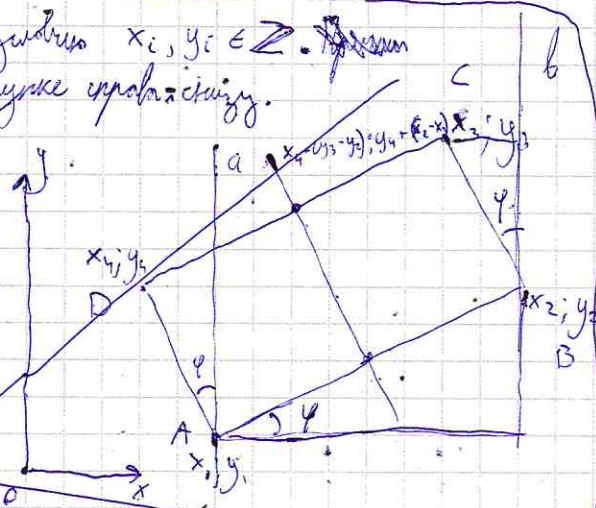 условию x_i, y_i ∈ Z.
рисунке справа снизу.
C
b
y
a
x_4-(y_3-y_2); y_4+(x_2-x_1)
x_3; y_3
φ
x_4; y_4
D
x_2; y_2
φ
B
A
φ
x_1 y_1
0
x